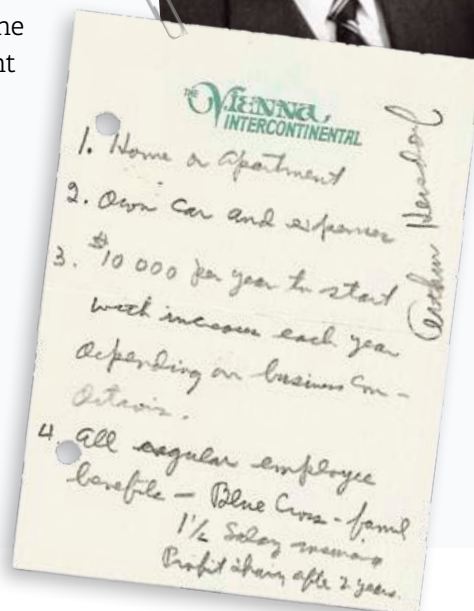 he
nt
THE VIENNA
INTERCONTINENTAL
1. Home or Apartment
2. Own Car and expenses
3. $10 000 per year to start
with increases each year
depending on business con-
4. All regular employee
benefits - Blue Cross - famil
1½ Salary
Profit sharing after 2 years.
Arthur